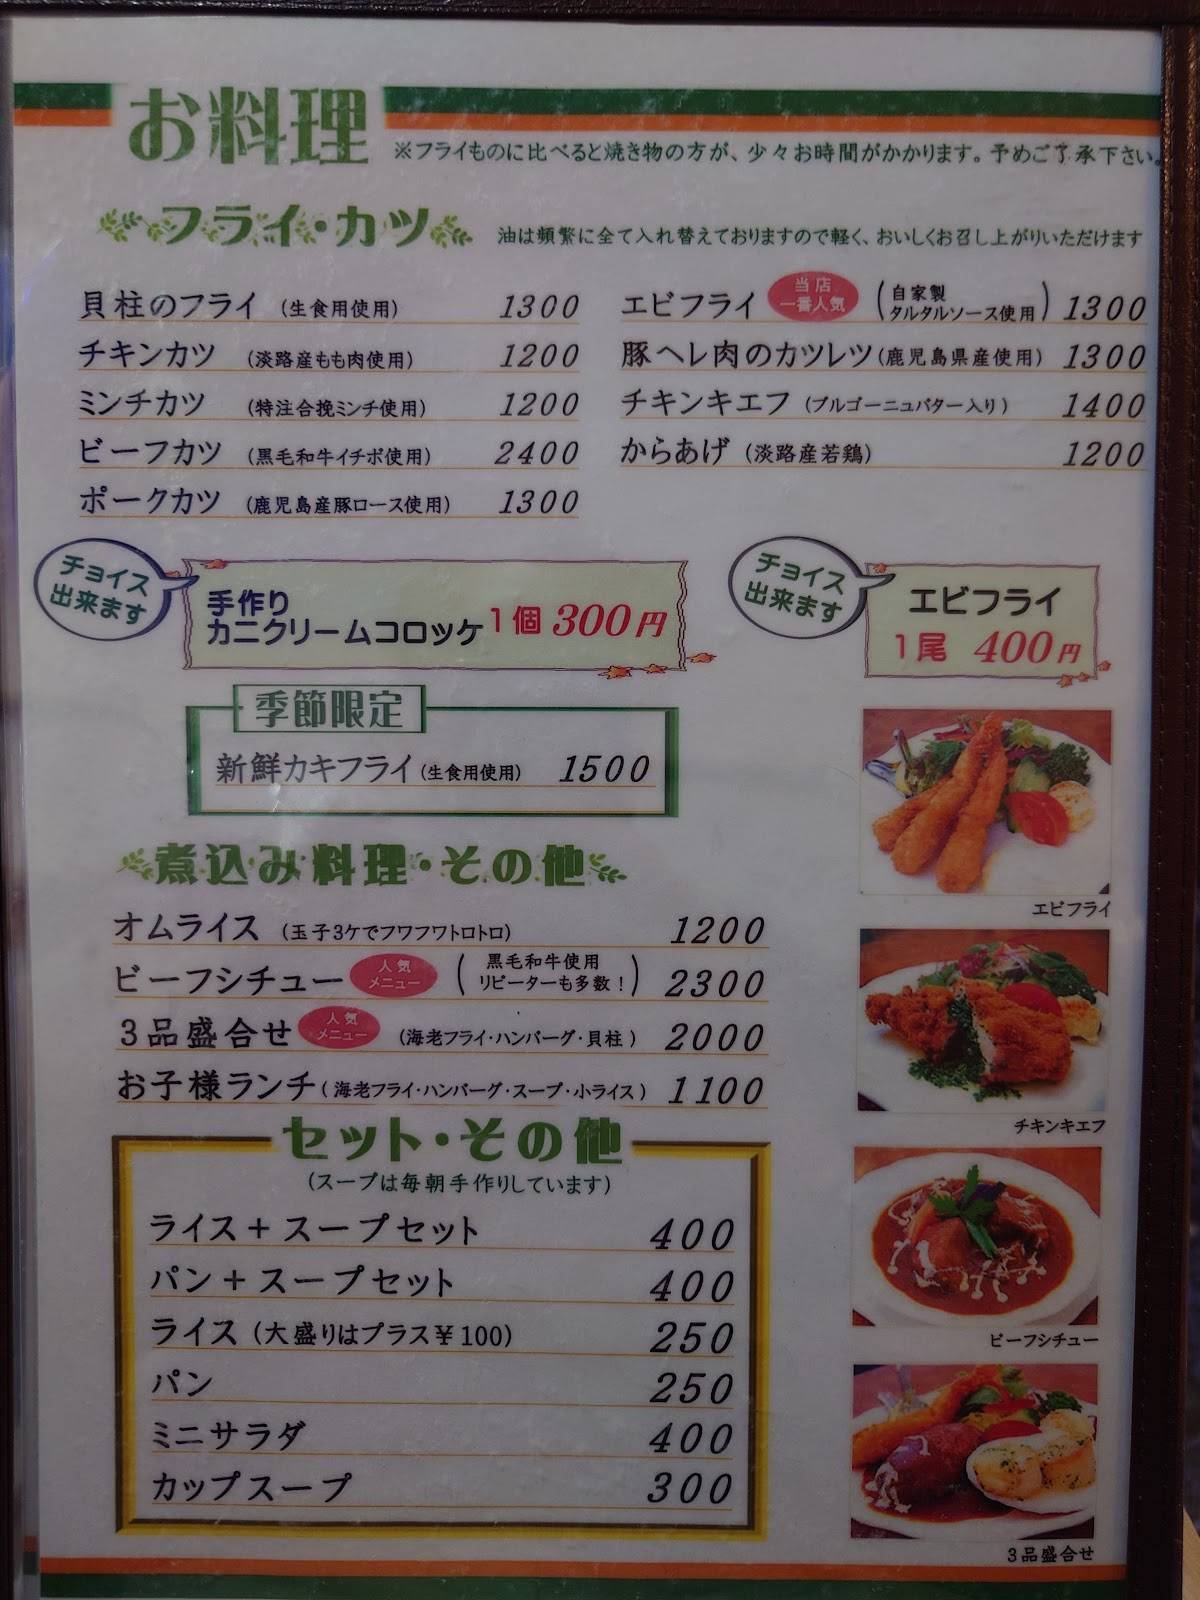 お料理
※フライものに比べると焼き物の方が、少々お時間がかかります。予めご了承下さい。
フライ・カツ
油は頻繁に全て入れ替えておりますので軽く、おいしくお召し上がりいただけます
貝柱のフライ (生食用使用) 1300
チキンカツ (淡路産もも肉使用) 1200
ミンチカツ (特注合挽ミンチ使用) 1200
ビーフカツ (黒毛和牛イチボ使用) 2400
ポークカツ (鹿児島産豚ロース使用) 1300
エビフライ 当店一番人気 (自家製タルタルソース使用) 1300
豚ヘレ肉のカツレツ (鹿児島県産使用) 1300
チキンキエフ (ブルゴーニュバター入り) 1400
からあげ (淡路産若鶏) 1200
チョイス
出来ます
手作り
カニクリームコロッケ 1個 300円
チョイス
出来ます
エビフライ
1尾 400円
季節限定
新鮮カキフライ (生食用使用) 1500
煮込み料理・その他
オムライス (玉子3ケでフワフワトロトロ) 1200
ビーフシチュー 人気メニュー (黒毛和牛使用 リピーターも多数！) 2300
3品盛合せ 人気メニュー (海老フライ・ハンバーグ・貝柱) 2000
お子様ランチ (海老フライ・ハンバーグ・スープ・小ライス) 1100
セット・その他
(スープは毎朝手作りしています)
ライス＋スープセット 400
パン＋スープセット 400
ライス (大盛りはプラス￥100) 250
パン 250
ミニサラダ 400
カップスープ 300
エビフライ
チキンキエフ
ビーフシチュー
3品盛合せ